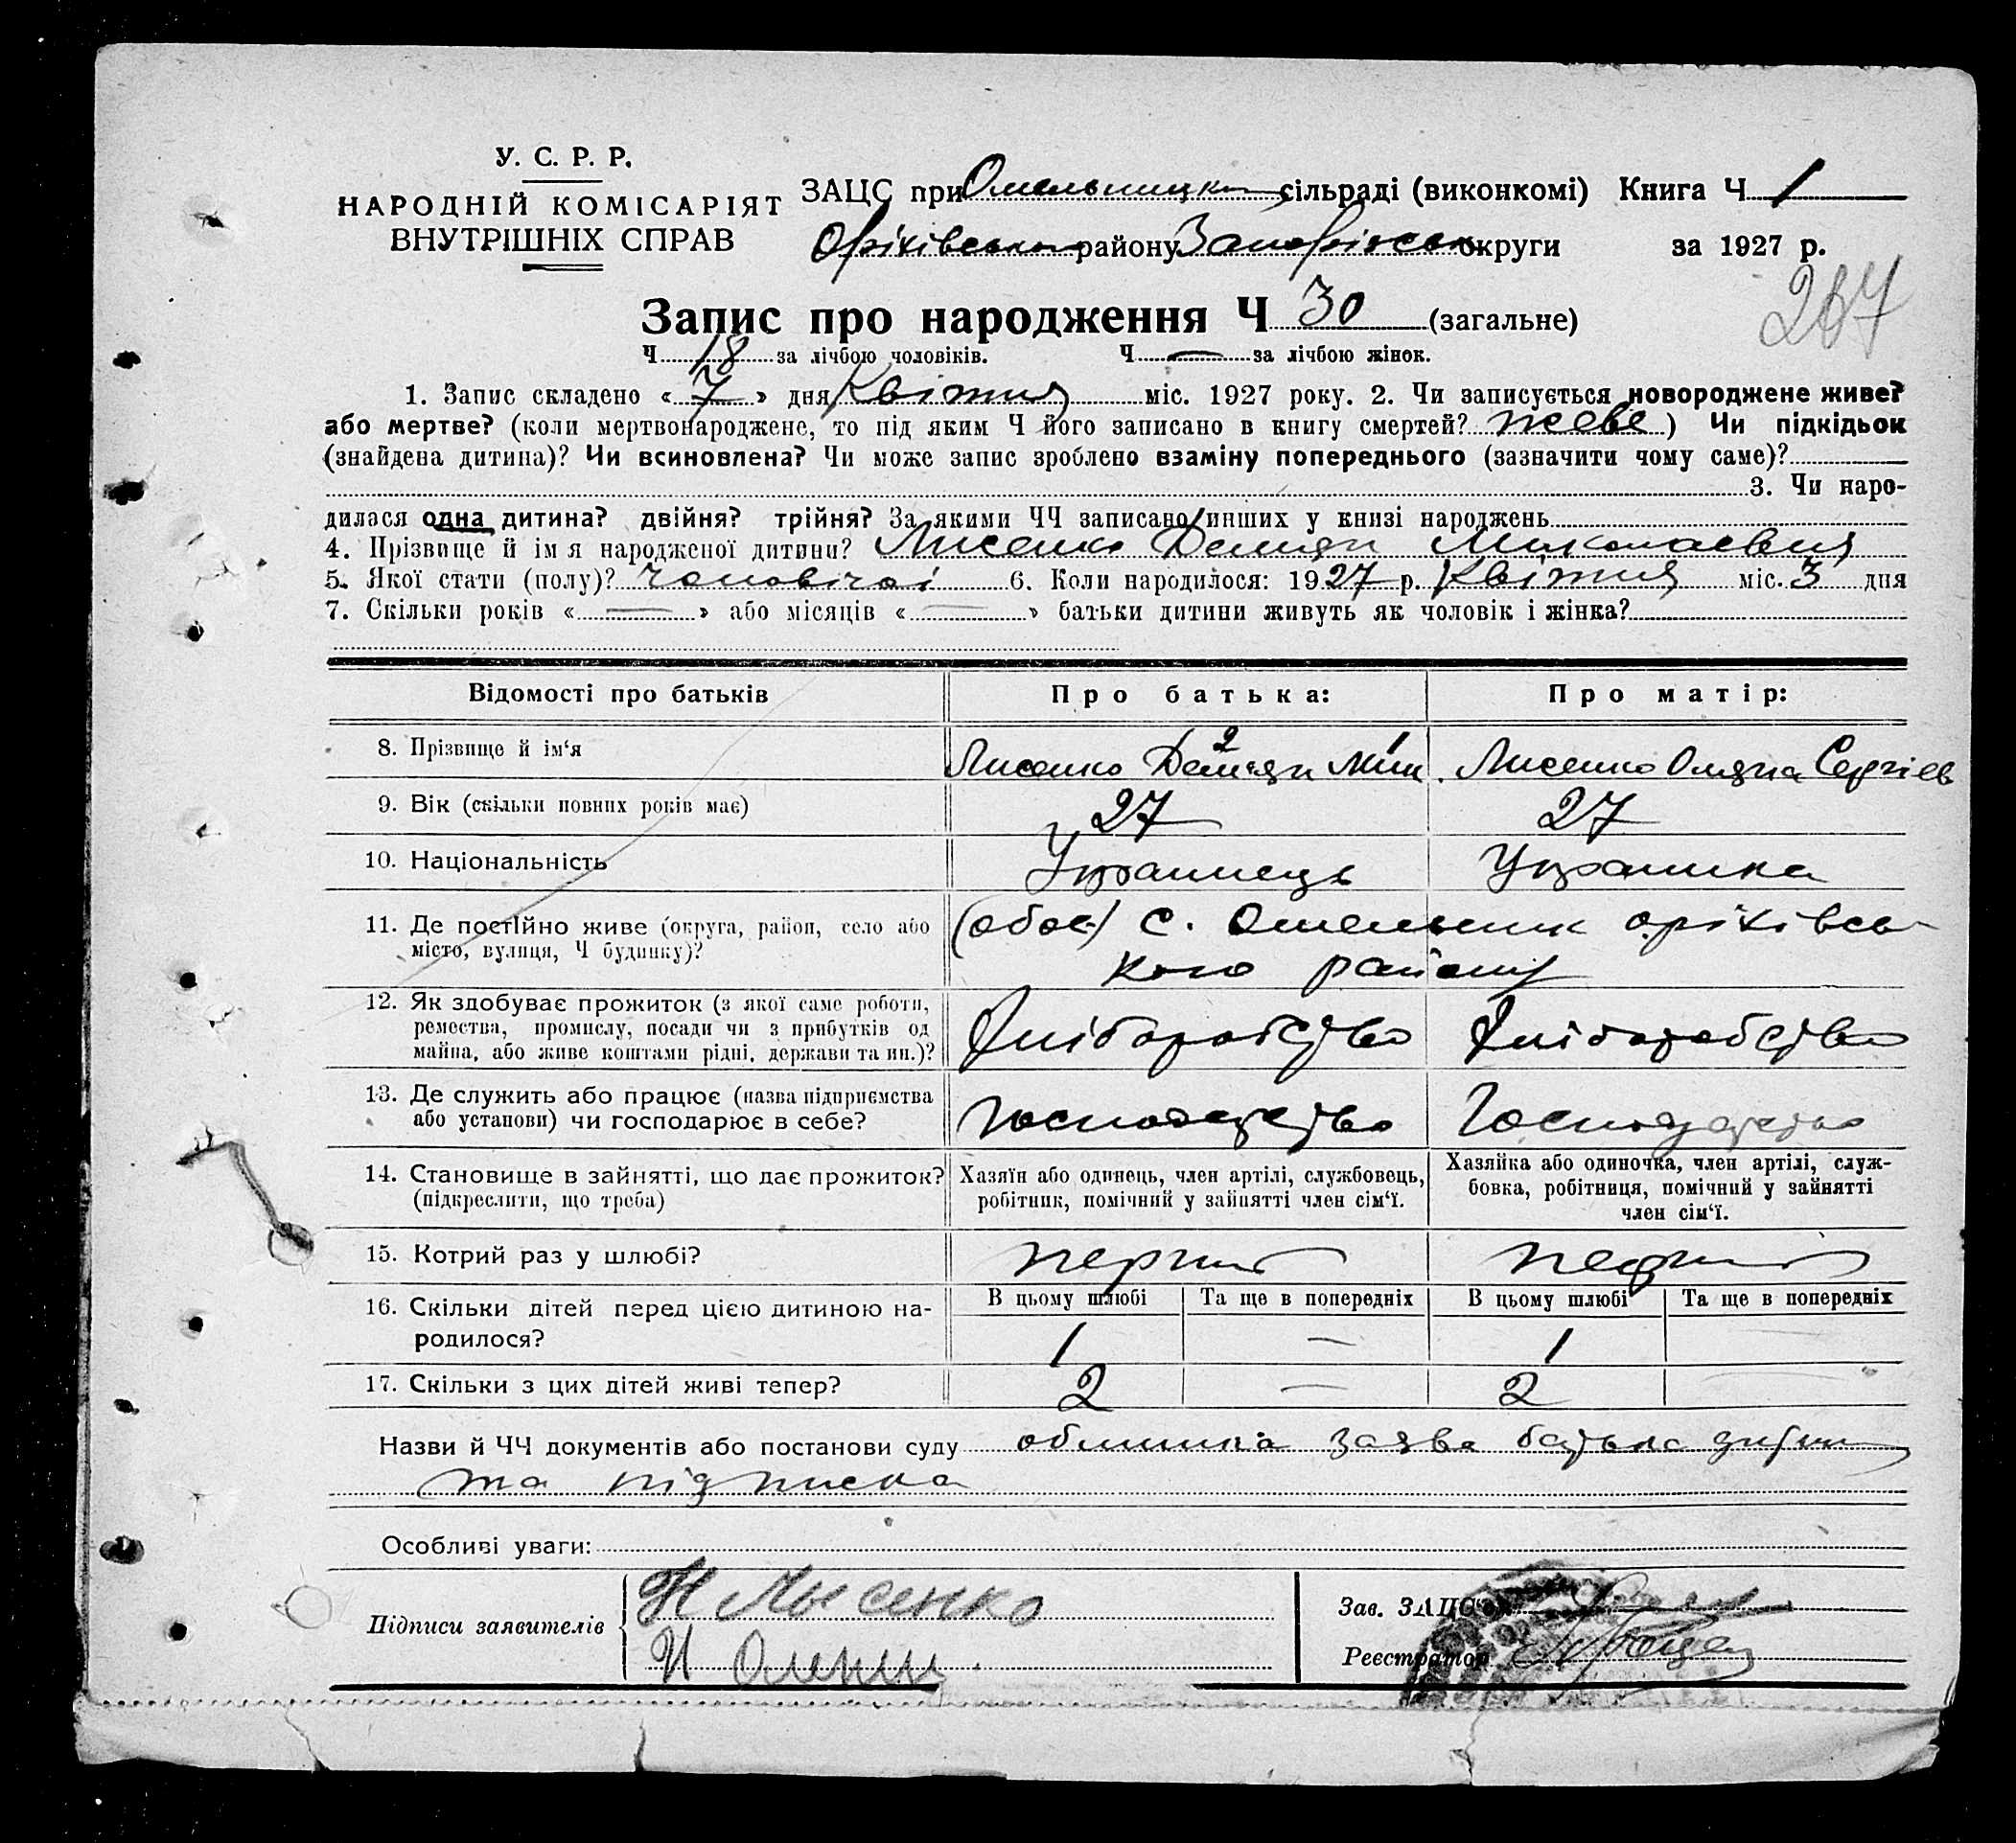 У. С. Р. Р.
НАРОДНІЙ КОМІСАРІЯТ
ВНУТРІШНІХ СПРАВ
ЗАЦС при Омельницьк сільраді (виконкомі) Книга Ч 1
Оріхівськ району Запоріжськ округи за 1927 р.
Запис про народження Ч 30 (загальне)
Ч 18 за лічбою чоловіків. Ч — за лічбою жінок.
1. Запис складено « 7 » дня Квітня міс. 1927 року. 2. Чи записується новороджене живе?
або мертве? (коли мертвонароджене, то під яким Ч його записано в книгу смертей? живе ) Чи підкідьок
(знайдена дитина)? Чи всиновлена? Чи може запис зроблено взаміну попереднього (зазначити чому саме)?
3. Чи наро-
дилася одна дитина? двійня? трійня? За якими ЧЧ записано инших у книзі народжень
4. Прізвище й ім я народженої дитини? Лисенко Демян Миколаевич
5. Якої стати (полу)? чоловічої 6. Коли народилося: 1927 р. Квітня міс. 3 дня
7. Скільки років « — » або місяців « — » батьки дитини живуть як чоловік і жінка?
Відомості про батьків Про батька: Про матір:
8. Прізвище й ім‘я Лисенко Демян Мик Лисенко Оляна Сергіев
2 1
9. Вік (скільки повних років має) 27 27
10. Національність Українець Українка
11. Де постійно живе (округа, район, село або (обоє) с. Омельник оріхівсь-
місто, вулиця, Ч будинку)? кого району
12. Як здобуває прожиток (з якої саме роботи,
ремества, промислу, посади чи з прибутків од Хліборобство Хліборобство
майна, або живе коштами рідні, держави та ин.)?
13. Де служить або працює (назва підприємства
або установи) чи господарює в себе? Господарство Господарство
14. Становище в зайнятті, що дає прожиток? Хазяїн або одинець, член артілі, службовець, Хазяйка або одиночка, член артілі, служ-
(підкреслити, що треба) робітник, помічний у зайнятті член сім‘ї. бовка, робітниця, помічний у зайнятті
член сім‘ї.
15. Котрий раз у шлюбі? перший перший
16. Скільки дітей перед цією дитиною на- В цьому шлюбі Та ще в попередніх В цьому шлюбі Та ще в попередніх
родилося? 1 — 1
17. Скільки з цих дітей живі тепер? 2 — 2
Назви й ЧЧ документів або постанови суду заява батька
та підписка
Особливі уваги:
Підписи заявителів Н Лысенко
И
Зав. ЗАЦС‘у
Реєстратор